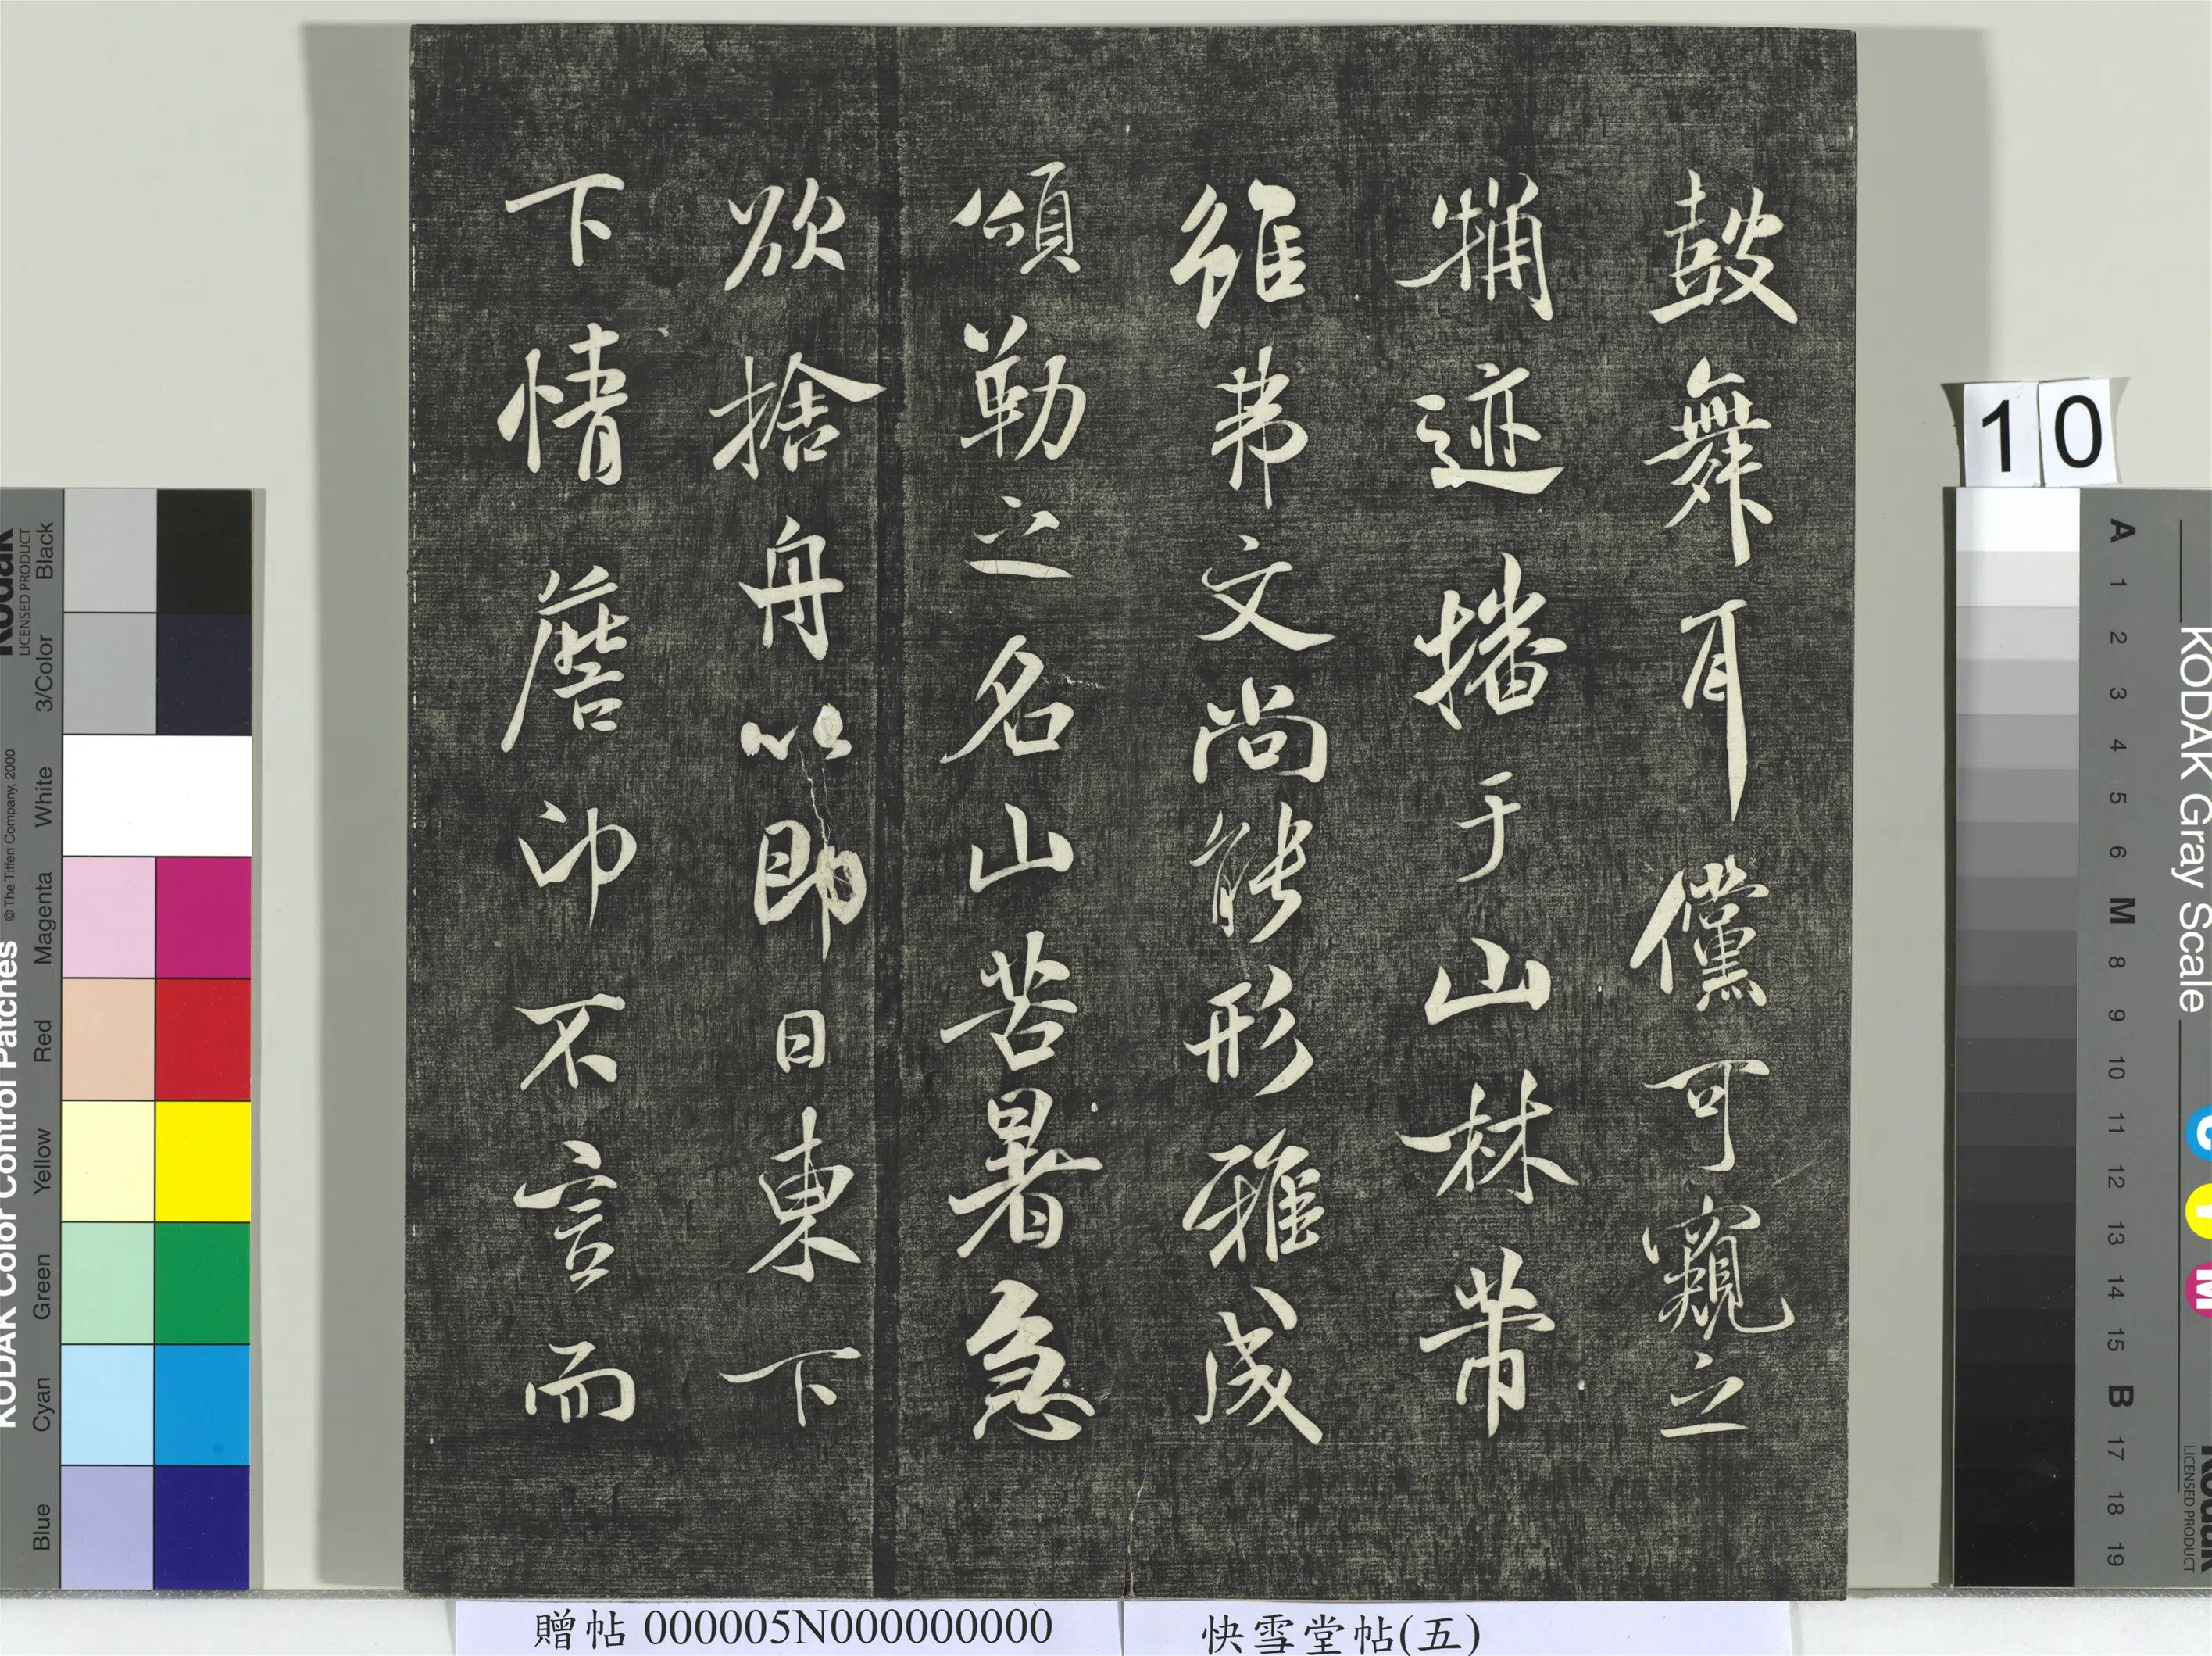 鼓舞耳儻可窺立
捕迹播于山林芾
雖弗文尚能形雅成
頌勒之名山苦暑急
欲捨舟以即日東下
下情詹卬不言而
10
贈帖 000005N000000000
快雪堂帖(五)
KODAK Color Control Patches
© The Tiffen Company, 2000
Kodak
LICENSED PRODUCT
Black
3/Color
White
Magenta
Red
Yellow
Green
Cyan
Blue
KODAK Gray Scale
C
Y
M
Kodak
LICENSED PRODUCT
A 1 2 3 4 5 6 M 8 9 10 11 12 13 14 15 B 17 18 19